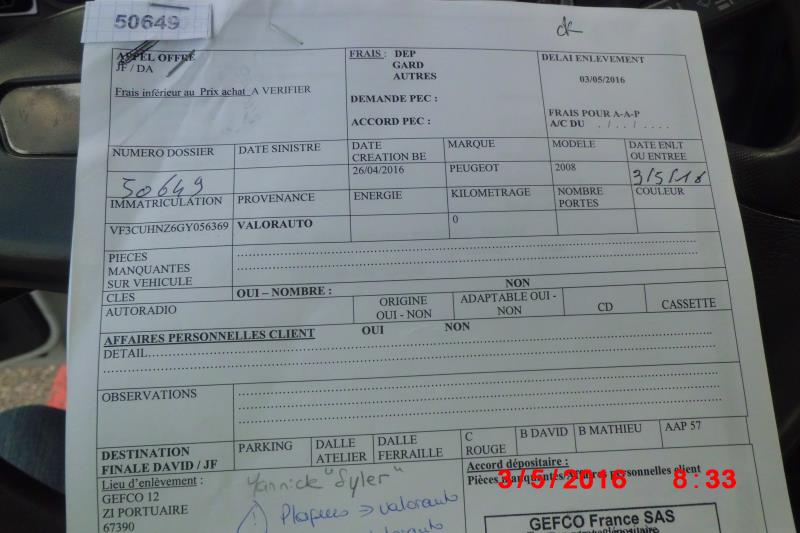 50649
ok
APPEL OFFRE
JF / DA
Frais inférieur au Prix achat A VERIFIER
FRAIS : DEP
GARD
AUTRES
DEMANDE PEC :
ACCORD PEC :
DELAI ENLEVEMENT
03/05/2016
FRAIS POUR A-A-P
A/C DU . / . . / . . . .
NUMERO DOSSIER
DATE SINISTRE
DATE CREATION BE
MARQUE
MODELE
DATE ENLT OU ENTREE
50649
26/04/2016
PEUGEOT
2008
3/5/18
IMMATRICULATION
PROVENANCE
ENERGIE
KILOMETRAGE
NOMBRE PORTES
COULEUR
VF3CUHNZ6GY056369
VALORAUTO
0
PIECES
MANQUANTES
SUR VEHICULE
CLES
OUI – NOMBRE :
NON
AUTORADIO
ORIGINE OUI - NON
ADAPTABLE OUI - NON
CD
CASSETTE
AFFAIRES PERSONNELLES CLIENT OUI NON
DETAIL
OBSERVATIONS
DESTINATION
FINALE DAVID / JF
PARKING
DALLE ATELIER
DALLE FERRAILLE
C ROUGE
B DAVID
B MATHIEU
AAP 57
Lieu d'enlèvement :
GEFCO 12
ZI PORTUAIRE
67390
Yannick "Syler"
Plaques => valorauto
valorauto
Accord dépositaire :
Pièces manquantes/Affaires personnelles client
3/5/2016 8:33
GEFCO France SAS